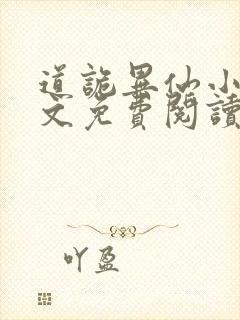 道詭異仙小
文免費閱讀
吖盈